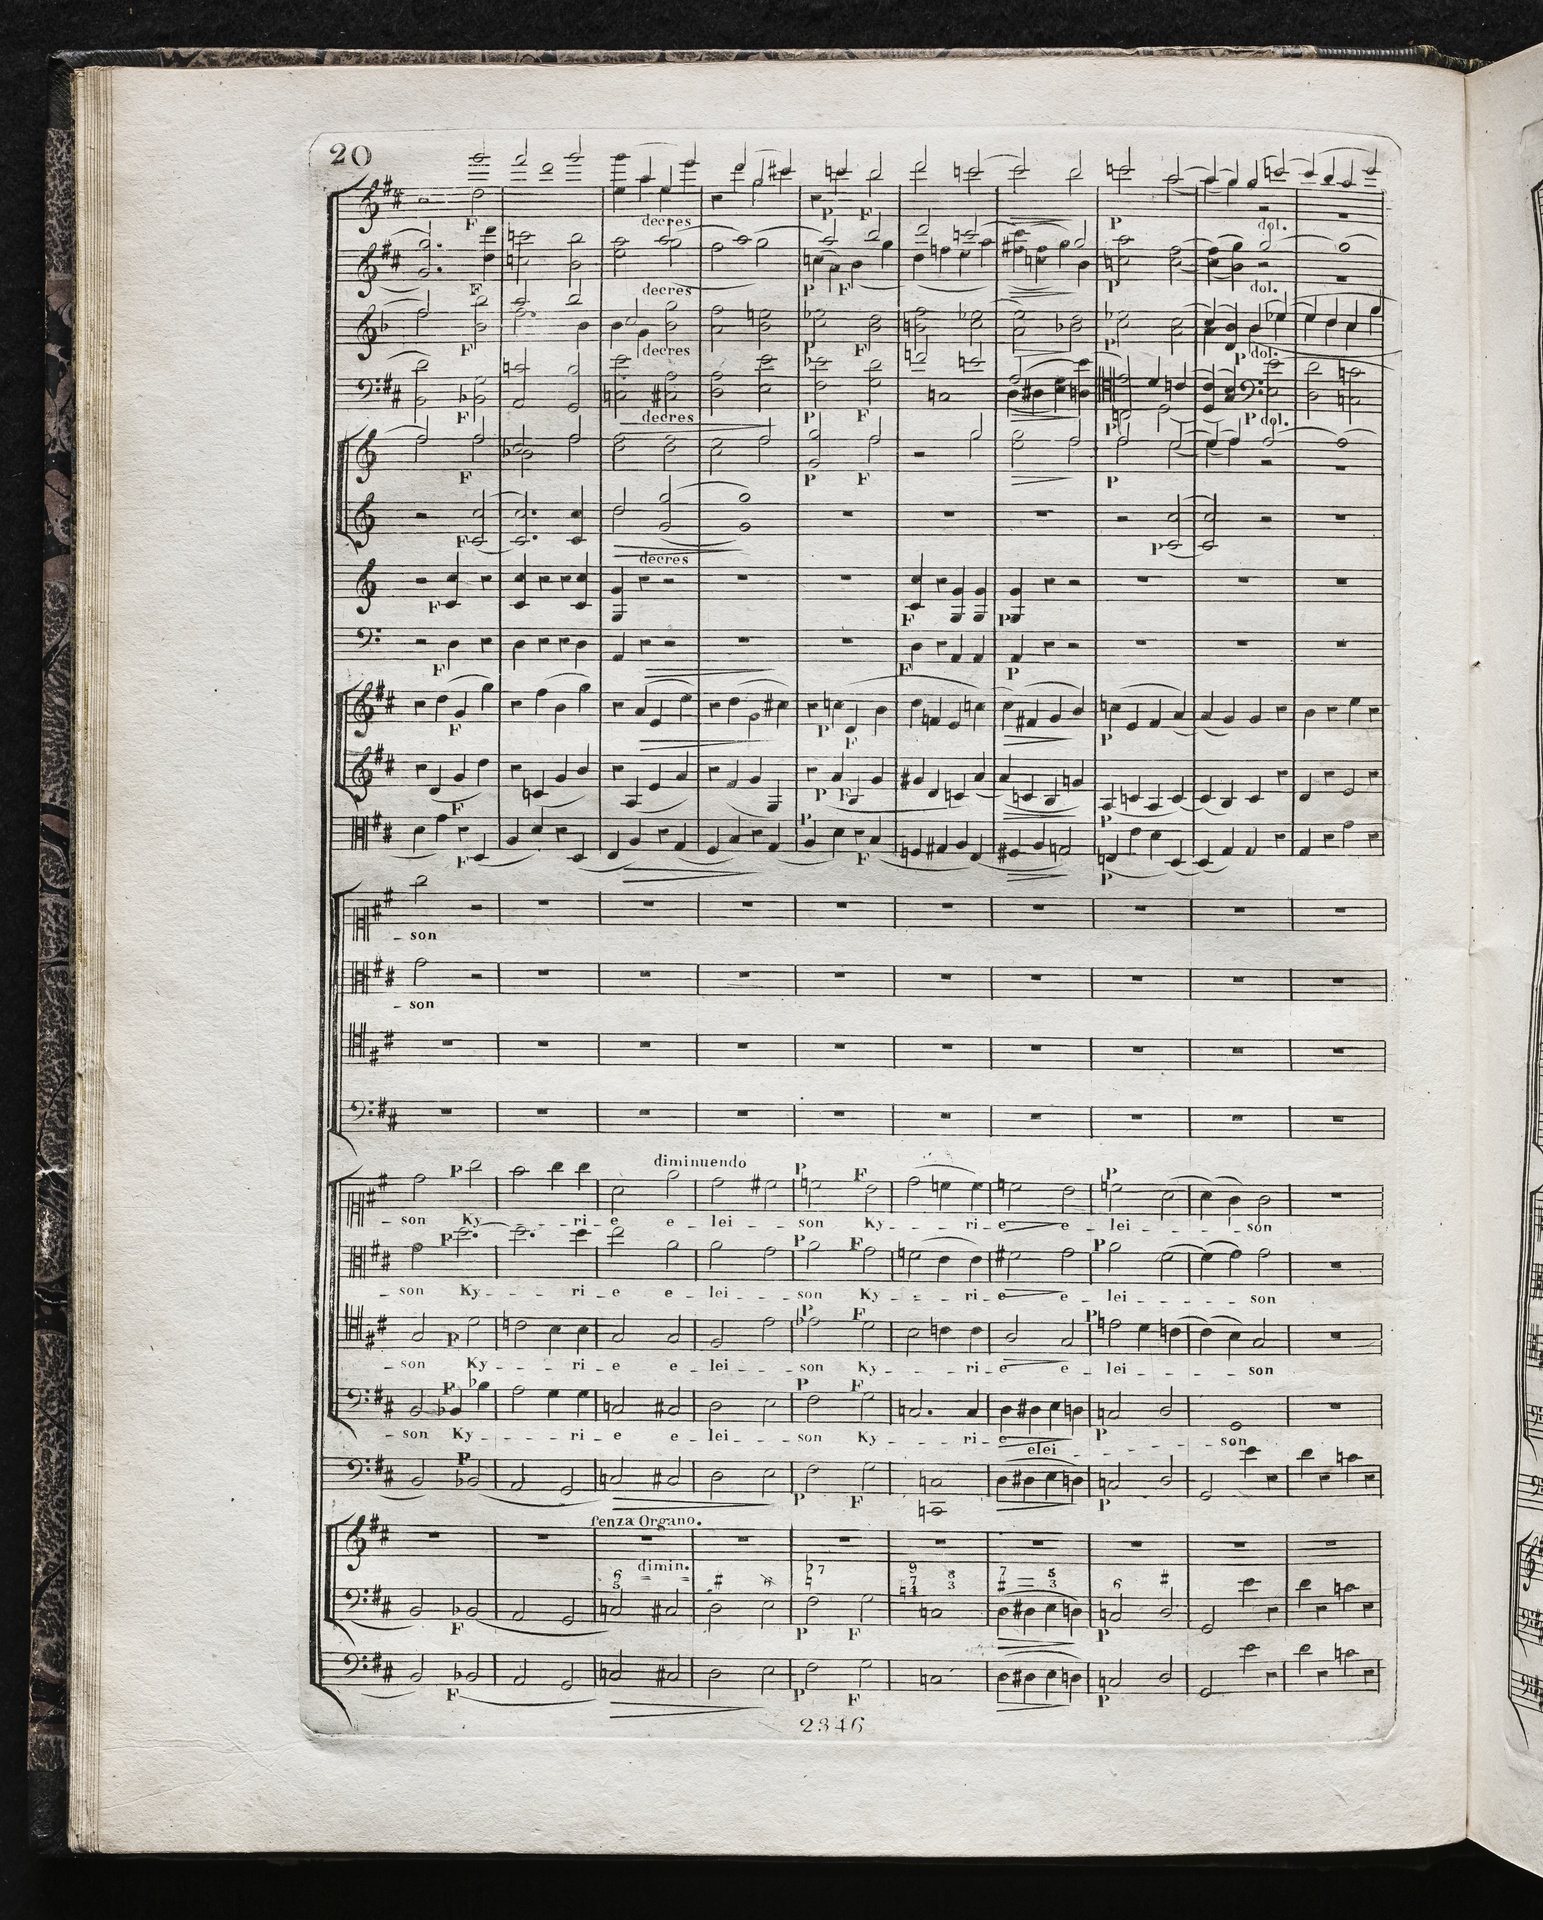 20
F
decres
P F
P
dol.
F
decres
P F
P
dol.
F
decres
P F
P
P dol.
F
decres
P F
P
P dol.
F
P F
P
F
decres
P
F
F
P
F
F
P
F
P
F
P
F
P F
P
F
P
F
P
_ son
_ son
diminuendo
P
P F
P
_ son Ky _ _ _ ri _ e e _ lei _ _ _ son Ky _ _ _ ri _ e e _ lei _ _ _ _ son
P
P F
P
_ son Ky _ _ _ ri _ e e _ lei _ _ _ son Ky _ _ _ ri _ e e _ lei _ _ _ _ son
P
P F
P
_ son Ky _ _ _ ri _ e e _ lei _ _ _ son Ky _ _ _ ri _ e e _ lei _ _ _ _ son
P
P F
P
_ son Ky _ _ _ ri _ e e _ lei _ _ _ son Ky _ _ _ ri _ e elei _ _ _ _ son
P
P F
P
senza Organo.
dimin.
6 5 6 7 9 7 4 8 3 7 5 3 6
F
P F
P
F
P F
P
2346